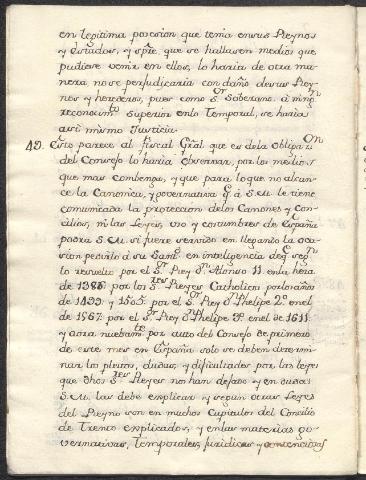 en legitima posesion que tenia en sus Reynos
y estados, y spre. que se hallasen medios que
pudiese venir en ellos, lo haria de otra ma
nera no se perjudicaria con daño de sus Rey
nos y herederos, pues como Sr. Soberano à ningn.
reconocimto. superior en lo Temporal, se haria
asi mismo Justicia.
49. Esto parece al fiscal Gral que es de la obligaon.
del Consejo lo haria observar, por los medios
que mas combenga, y que para lo que no alcan
ce la Canonica, y governativa q. à S.M. le tiene
comunicada la proteccion delos Canones y Con
cilios, ni las Leyes, uso y costumbres de España
podra S.M. si fuere servido en llegando la oca
sion pedirlo à su Santd. en inteligencia de q. segn.
lo resuelto por el Sr. Rey Dn. Alonso 11. en la hera
de 1386 por los Sres. Reyes Catholicos por los años
de 1499 y 1505 por el Sr. Rey Dn. Phelipe 2º. en el
de 1567 por el Sr. Rey Dn. Phelipe 3º. en el de 1611
y aora nuebamte. por auto del Consejo de primero
de este mes en España solo se deben determi
nar los pleitos, dudas, y dificultades por las leyes
que dhos Sres. Reyes nos han dejado y en dudas
S.M. las debe explicar, y segun otras Leyes
del Reyno son en muchos Capitulos del Concilio
de Trento explicados, y en las materias go
vernativas, Temporales, Juridicas y contenciosas